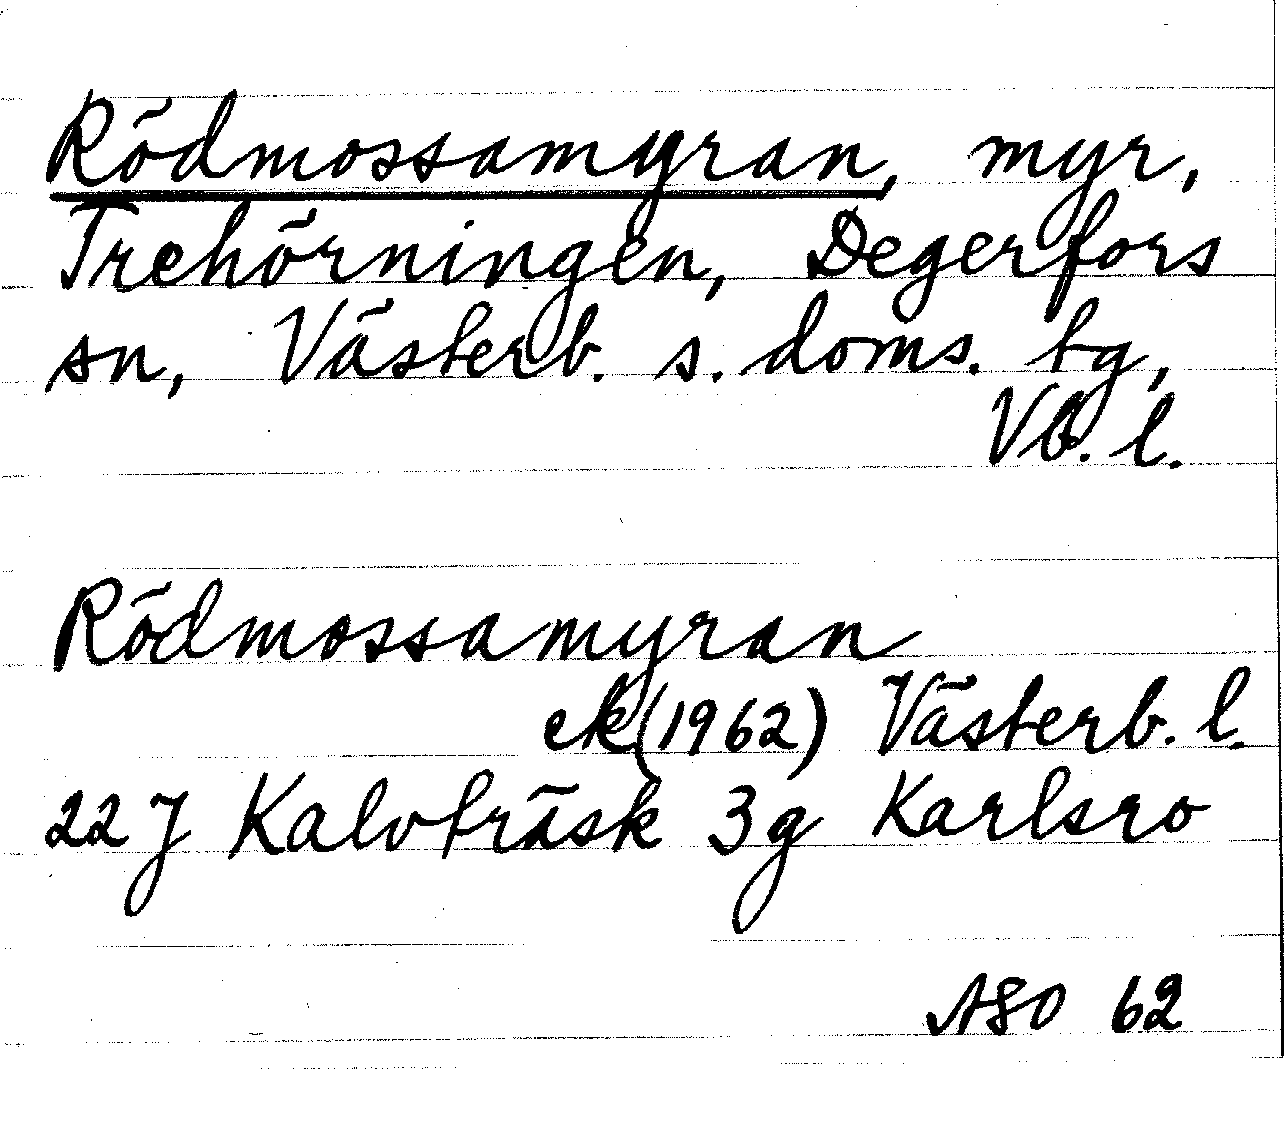 Rödmossamyran, myr,
Trehörningen, Degerfors
sn, Västerb. s. doms. tg,
Vb. l.
Rödmossamyran
ek (1962) Västerb. l.
22 J Kalvträsk 3g Karlsro
ASO 62